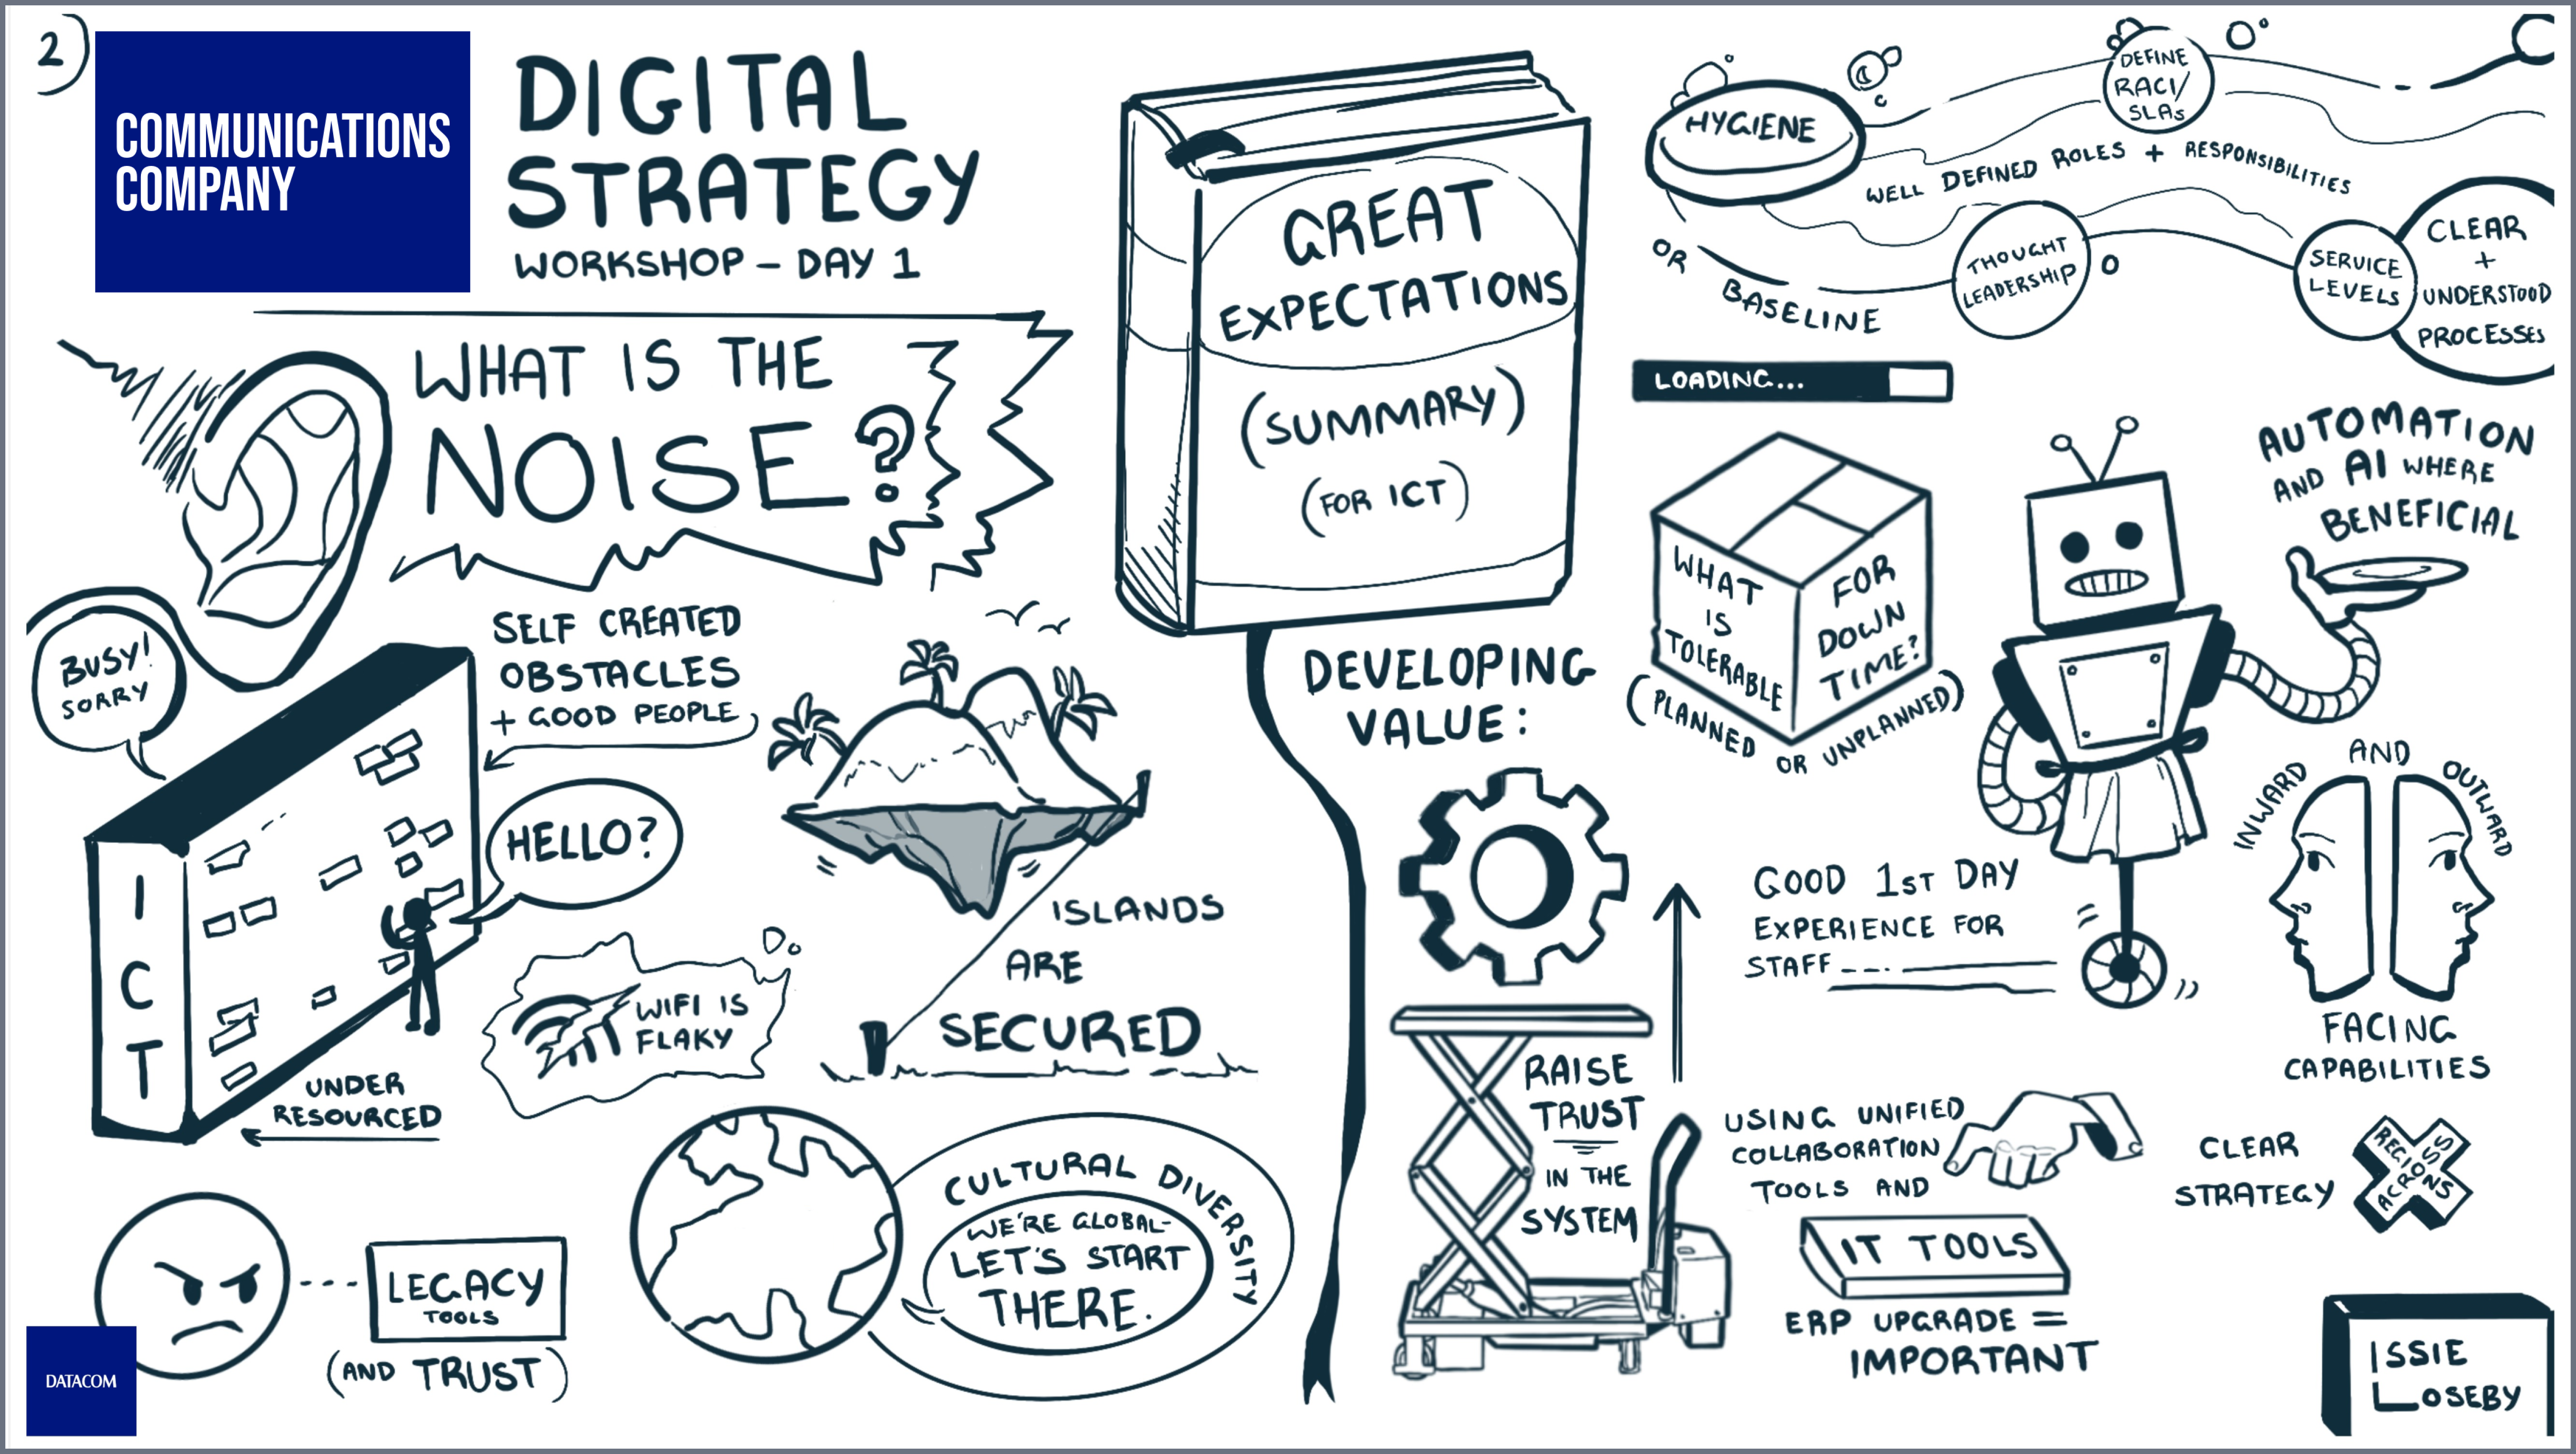 2)
COMMUNICATIONS
COMPANY
DIGITAL
STRATEGY
WORKSHOP - DAY 1
WHAT IS THE
NOISE?
BUSY!
SORRY
SELF CREATED
OBSTACLES
+ GOOD PEOPLE
ICT
HELLO?
UNDER
RESOURCED
WIFI IS
FLAKY
ISLANDS
ARE
SECURED
LEGACY
TOOLS
(AND TRUST)
CULTURAL DIVERSITY
WE'RE GLOBAL-
LET'S START
THERE.
DATACOM
GREAT
EXPECTATIONS
(SUMMARY)
(FOR ICT)
HYGIENE
OR BASELINE
DEFINE
RACI/
SLAs
WELL DEFINED ROLES + RESPONSIBILITIES
THOUGHT
LEADERSHIP
SERVICE
LEVELS
CLEAR
+
UNDERSTOOD
PROCESSES
LOADING...
WHAT
IS
TOLERABLE
FOR
DOWN
TIME?
(PLANNED OR UNPLANNED)
AUTOMATION
AND AI WHERE
BENEFICIAL
DEVELOPING
VALUE:
RAISE
TRUST
IN THE
SYSTEM
GOOD 1ST DAY
EXPERIENCE FOR
STAFF
INWARD AND OUTWARD
FACING
CAPABILITIES
USING UNIFIED
COLLABORATION
TOOLS AND
IT TOOLS
ERP UPGRADE =
IMPORTANT
CLEAR
STRATEGY
ACROSS
REGIONS
ISSIE
LOSEBY